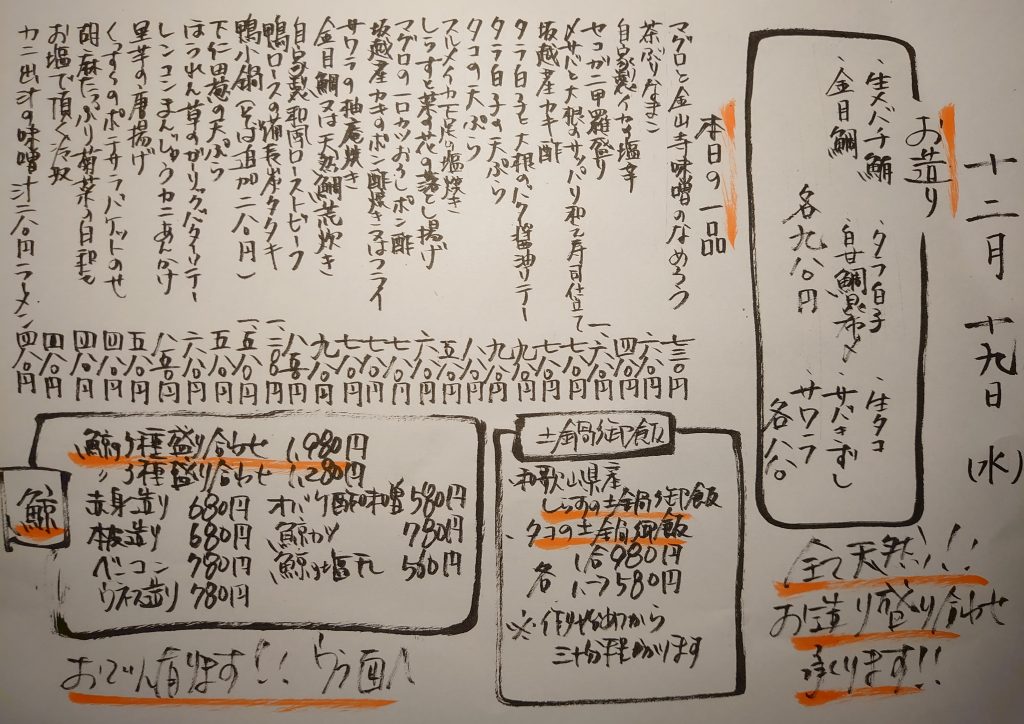 十二月 十九日 (水)
お造り
・生メバチ鮪 ・タラ白子 ・生タコ
・金目鯛 ・白甘鯛昆布〆 ・サバきずし
・サワラ
各九八〇円
各八八〇
全て天然!!!
お造り盛り合わせ
承ります!!
本日の一品
マグロと金山寺味噌のなめろう 七三〇円
茶ぶりなまこ 六八〇円
自家製イカの塩辛 四八〇円
セコガニ甲羅盛り 一、六八〇円
〆サバと大根のサッパリ和え寿司仕立て 七八〇円
坂越産カキ酢 七八〇円
タラ白子と大根のバタ醤油ソテー 九八〇円
タラ白子の天ぷら 九八〇円
タコの天ぷら 八八〇円
スルメイカ下足の塩焼き 五八〇円
しらすと菜の花の落とし揚げ 六八〇円
マグロの一口カツおろしポン酢 七八〇円
坂越産カキのポン酢焼き又はフライ 七八〇円
サワラの柚庵焼き 七八〇円
金目鯛又は天然鯛荒炊き 九八〇円
自家製和風ローストビーフ 八五〇円
鴨ロースの備長炭タタキ 一、二八〇円
鴨小鍋(そば追加二八〇円) 一、五八〇円
下仁田葱の天ぷら 五八〇円
ほうれん草のガーリックバターソテー 六八〇円
レンコンまんじゅうカニあんかけ 八五〇円
里芋の唐揚げ 五八〇円
くんすうのポテサラバケットのせ 四八〇円
胡麻たっぷり菊菜の白和え 四八〇円
お塩で頂く冷奴 四八〇円
カニ出汁の味噌汁二八〇円ラーメン四八〇円
土鍋御飯
・和歌山県産
しらすの土鍋御飯
・タコの土鍋御飯
各 1合980円
1/2 580円
※作り始めてから
三十分程かかります
鯨
鯨5種盛り合わせ 1,980円
〃3種盛り合わせ 1,280円
赤身造り 680円 オバケ酢味噌 580円
本皮造り 680円 鯨カツ 780円
ベーコン 780円 鯨の塩干し 580円
ウネス造り 780円
おでん有ります!! ウラ面へ